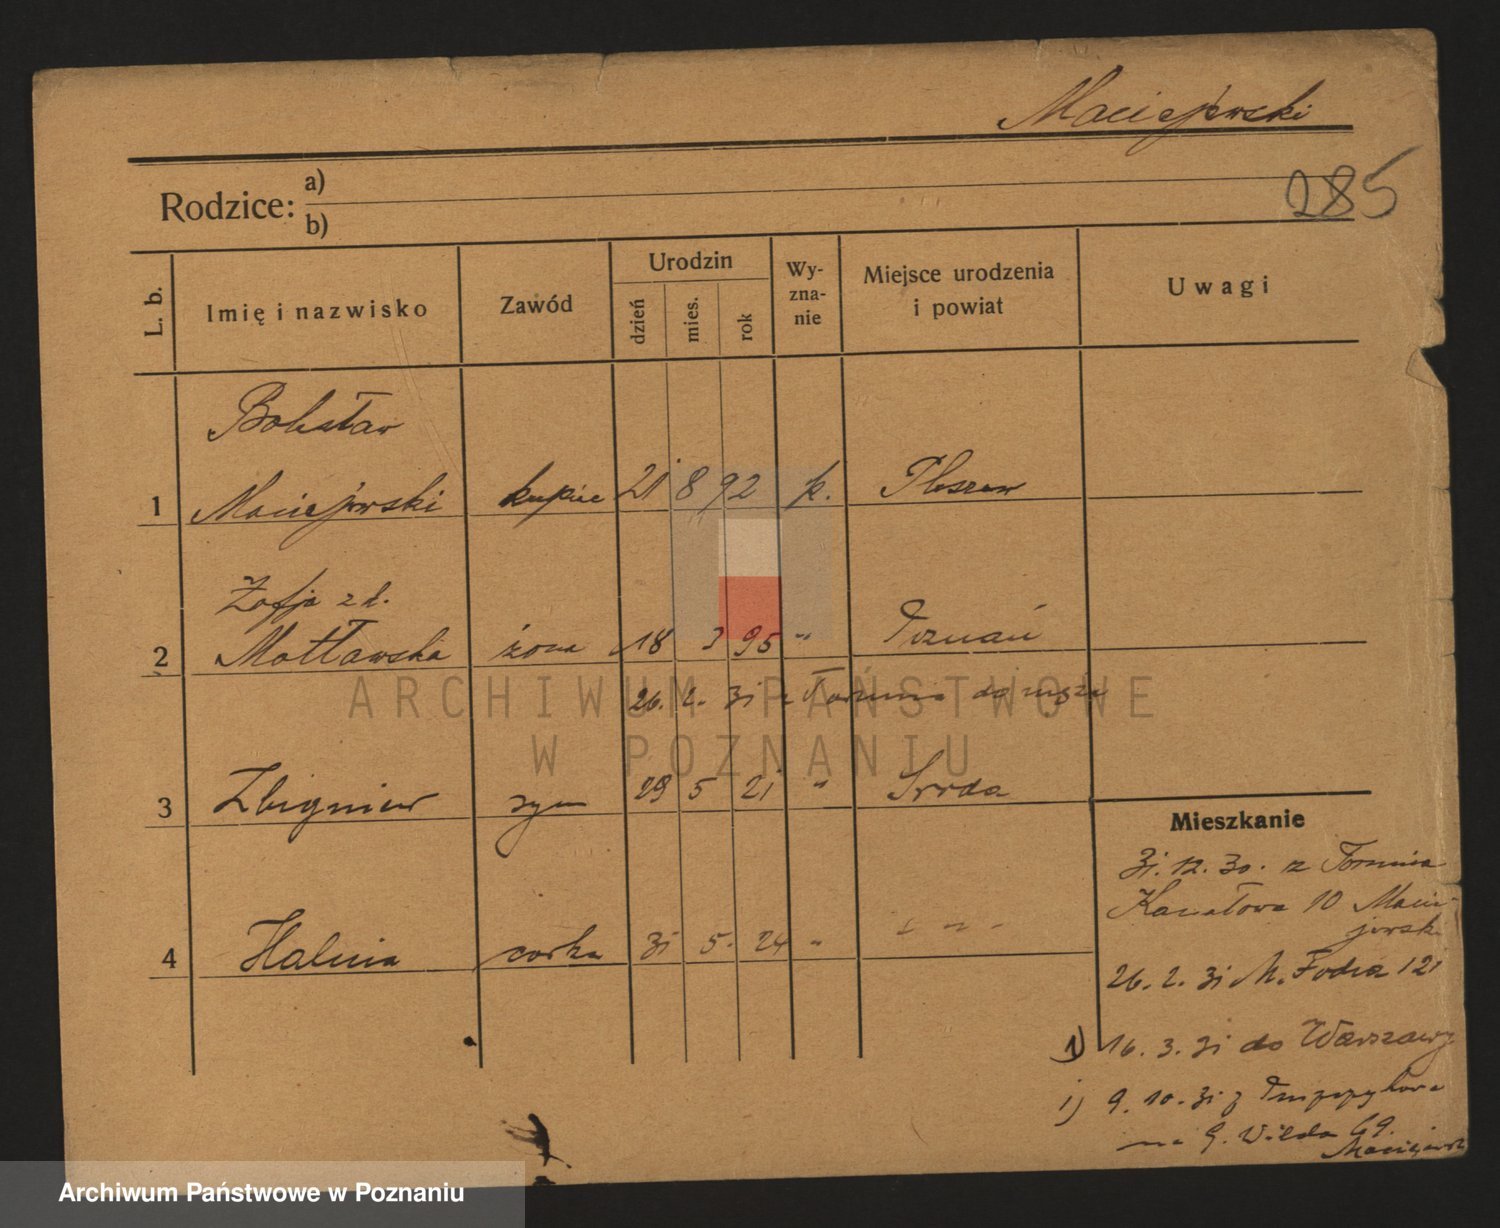 Maciejewski
285
Rodzice: a)
b)
L. b. Imię i nazwisko Zawód Urodzin dzień mies. rok Wy-zna-nie Miejsce urodzenia i powiat Uwagi
Bolesław
1 Maciejewski kupiec 21 8 92 k. Pleszew
Zofja z d.
2 Motławska żona 18 3 95 " Poznań
26. 2. 31 z Torunia do męża
3 Zbigniew syn 29 5 21 " Środa
4 Halina corka 31 5. 24 " " " "
Mieszkanie
31. 12. 30. z Torunia
Kanałowa 10 Macie-
jewski
26. 2. 31 M. Focha 121
1) 16. 3. 31 do Warszawy
1) 9. 10. 31 z
na G. Wilda 69.
Maciejewsk
ARCHIWUM PAŃSTWOWE
W POZNANIU
Archiwum Państwowe w Poznaniu